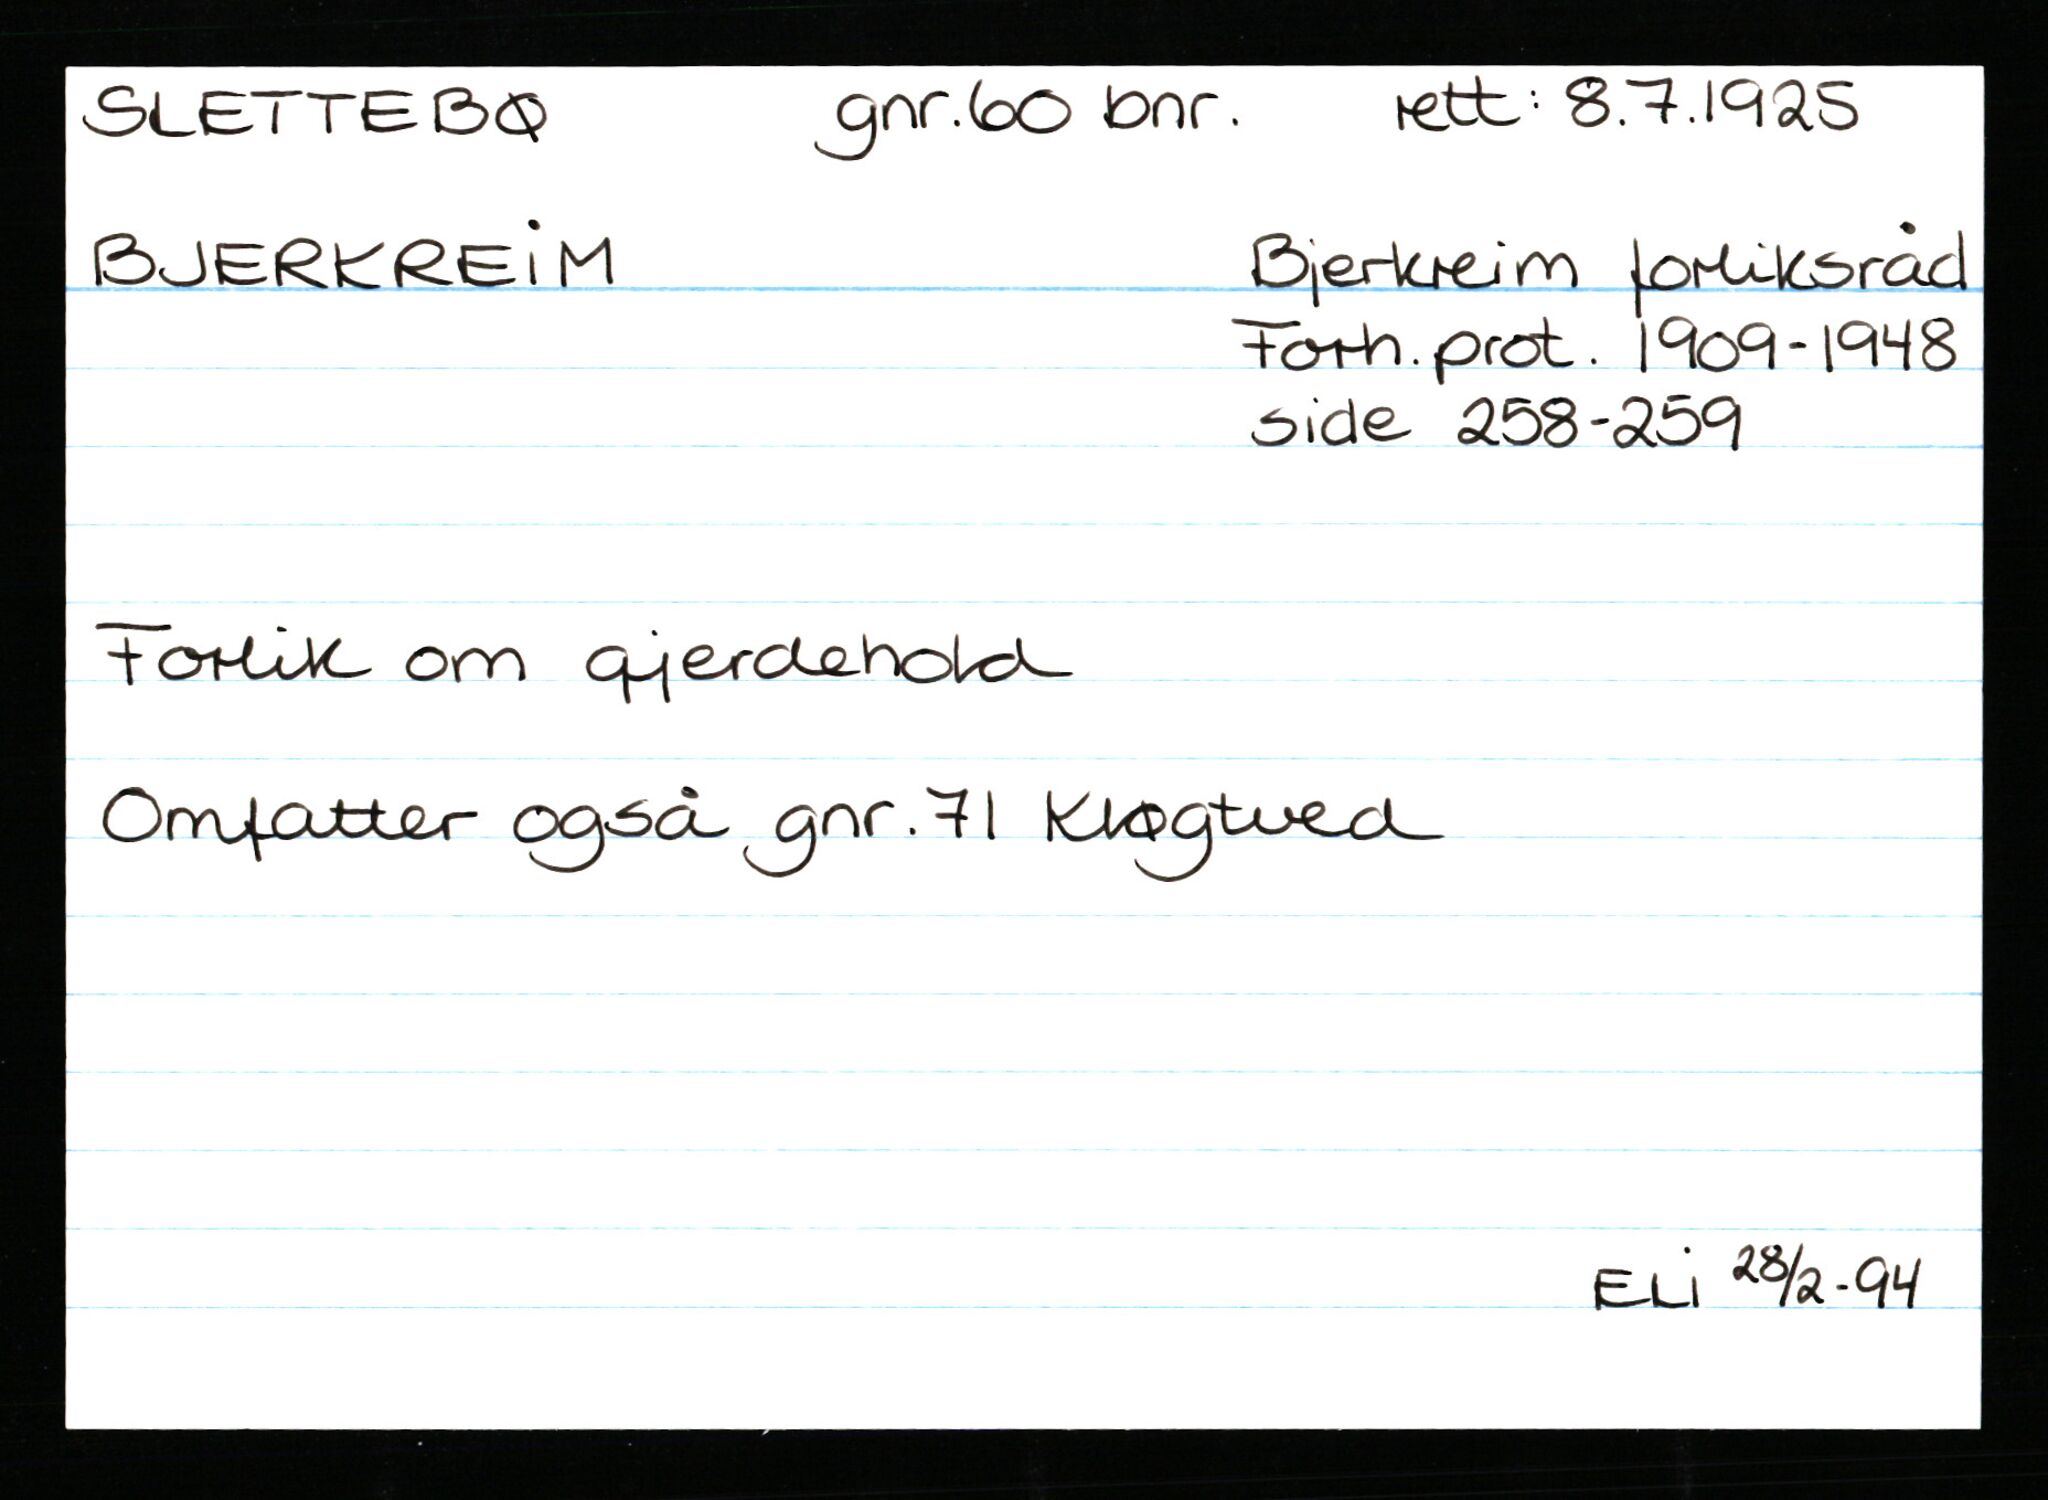 SLETTEBØ gnr. 60 bnr. rett: 8.7.1925
BJERKREIM Bjerkreim forliksråd
Forh. prot. 1909-1948
side 258-259
Forlik om gjerdehold
Omfatter også gnr. 71 Kløgtved
ELI 28/2-94